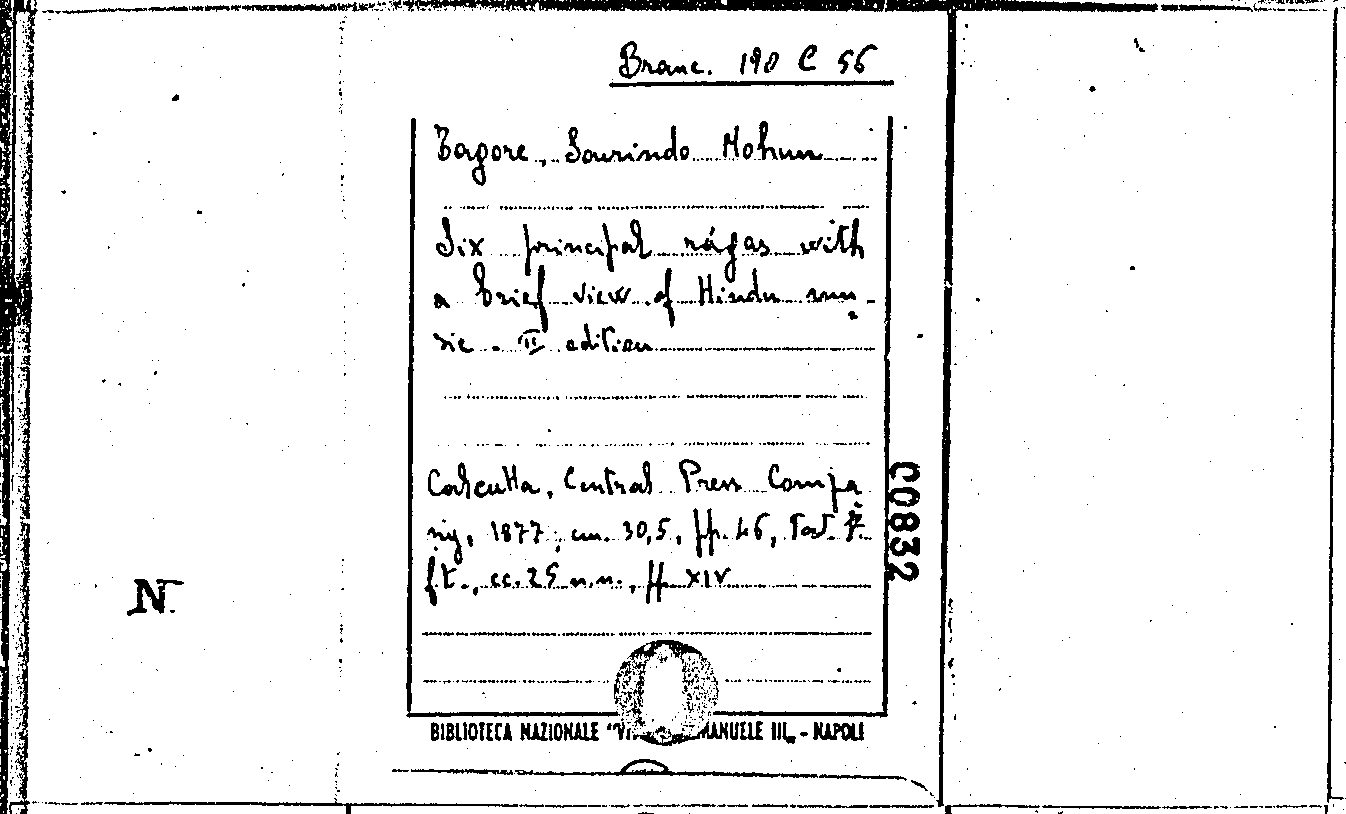 Branc. 190 C 56
Tagore, Sourindo Mohun
Six principal rágas with
a brief view of Hindu mu-
sic - II edition
Calcutta, Central Press Compa
ny, 1877, cm. 30,5, pp. 46, Tav. 7
ft., cc. 25 n.n., pp XIV
C0832
N
BIBLIOTECA NAZIONALE "VI MANUELE III„ - NAPOLI